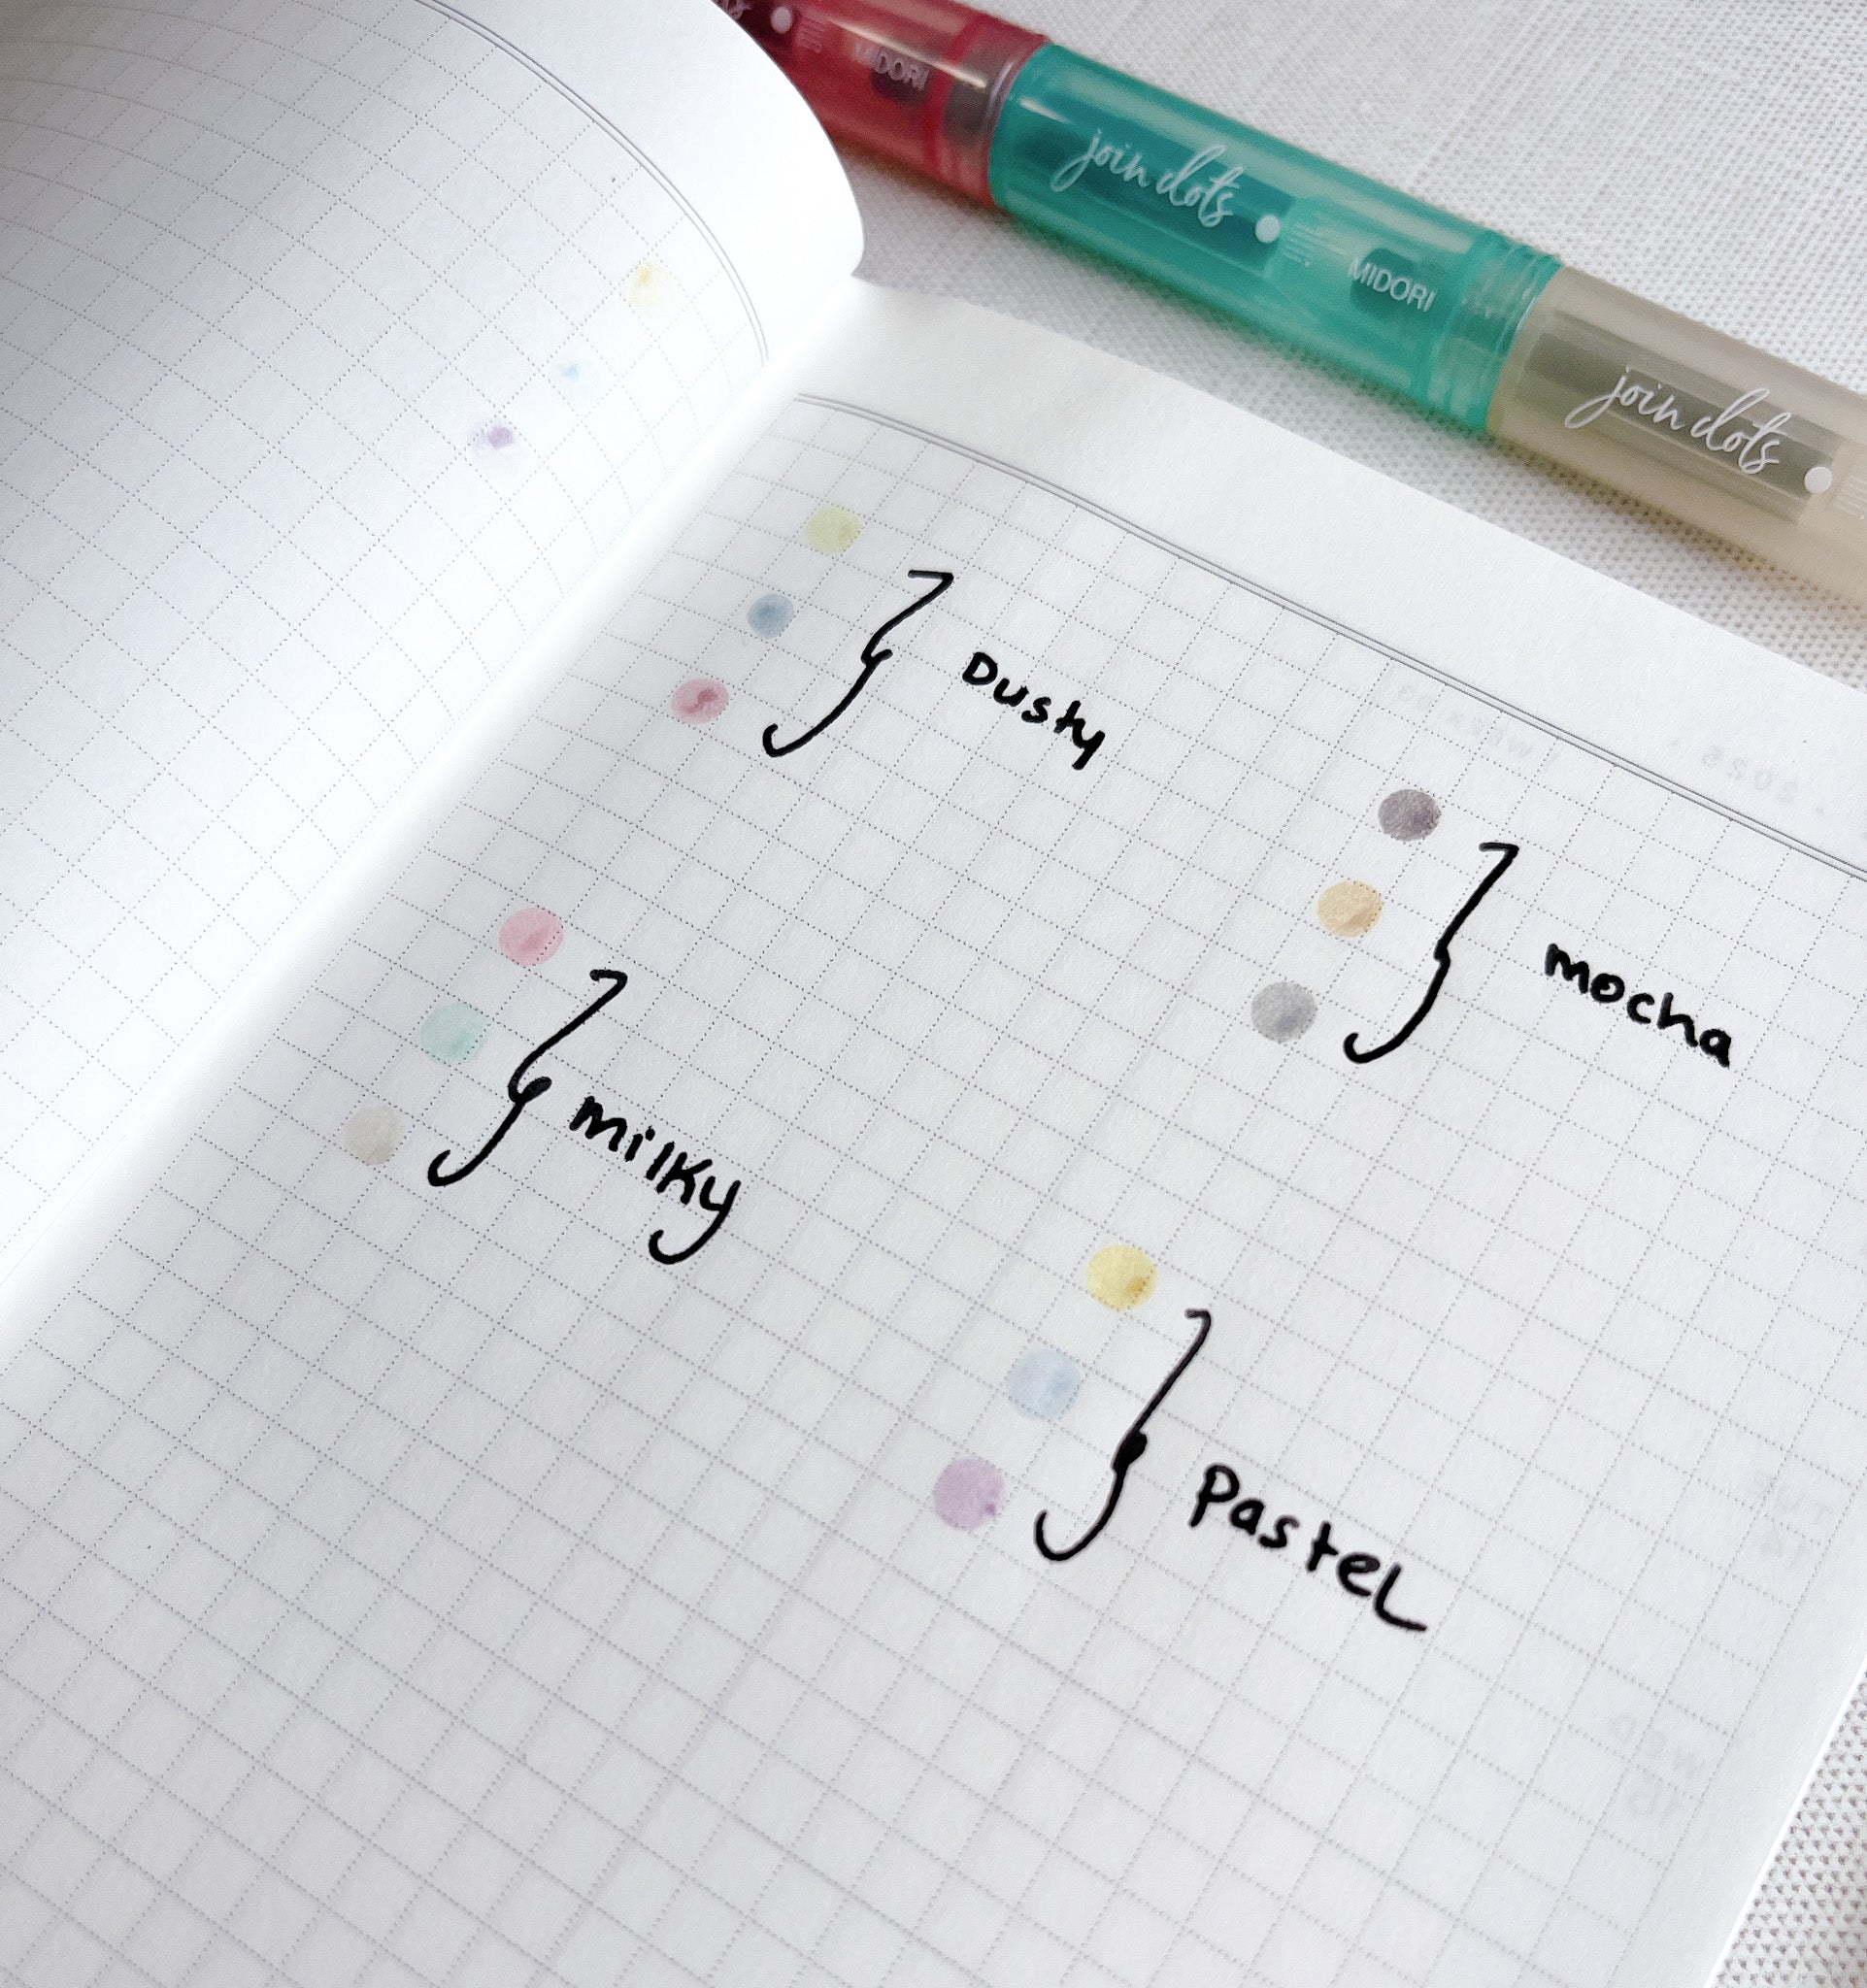 MIDORI
join dots
MIDORI
join dots
Dusty
mocha
milky
Pastel